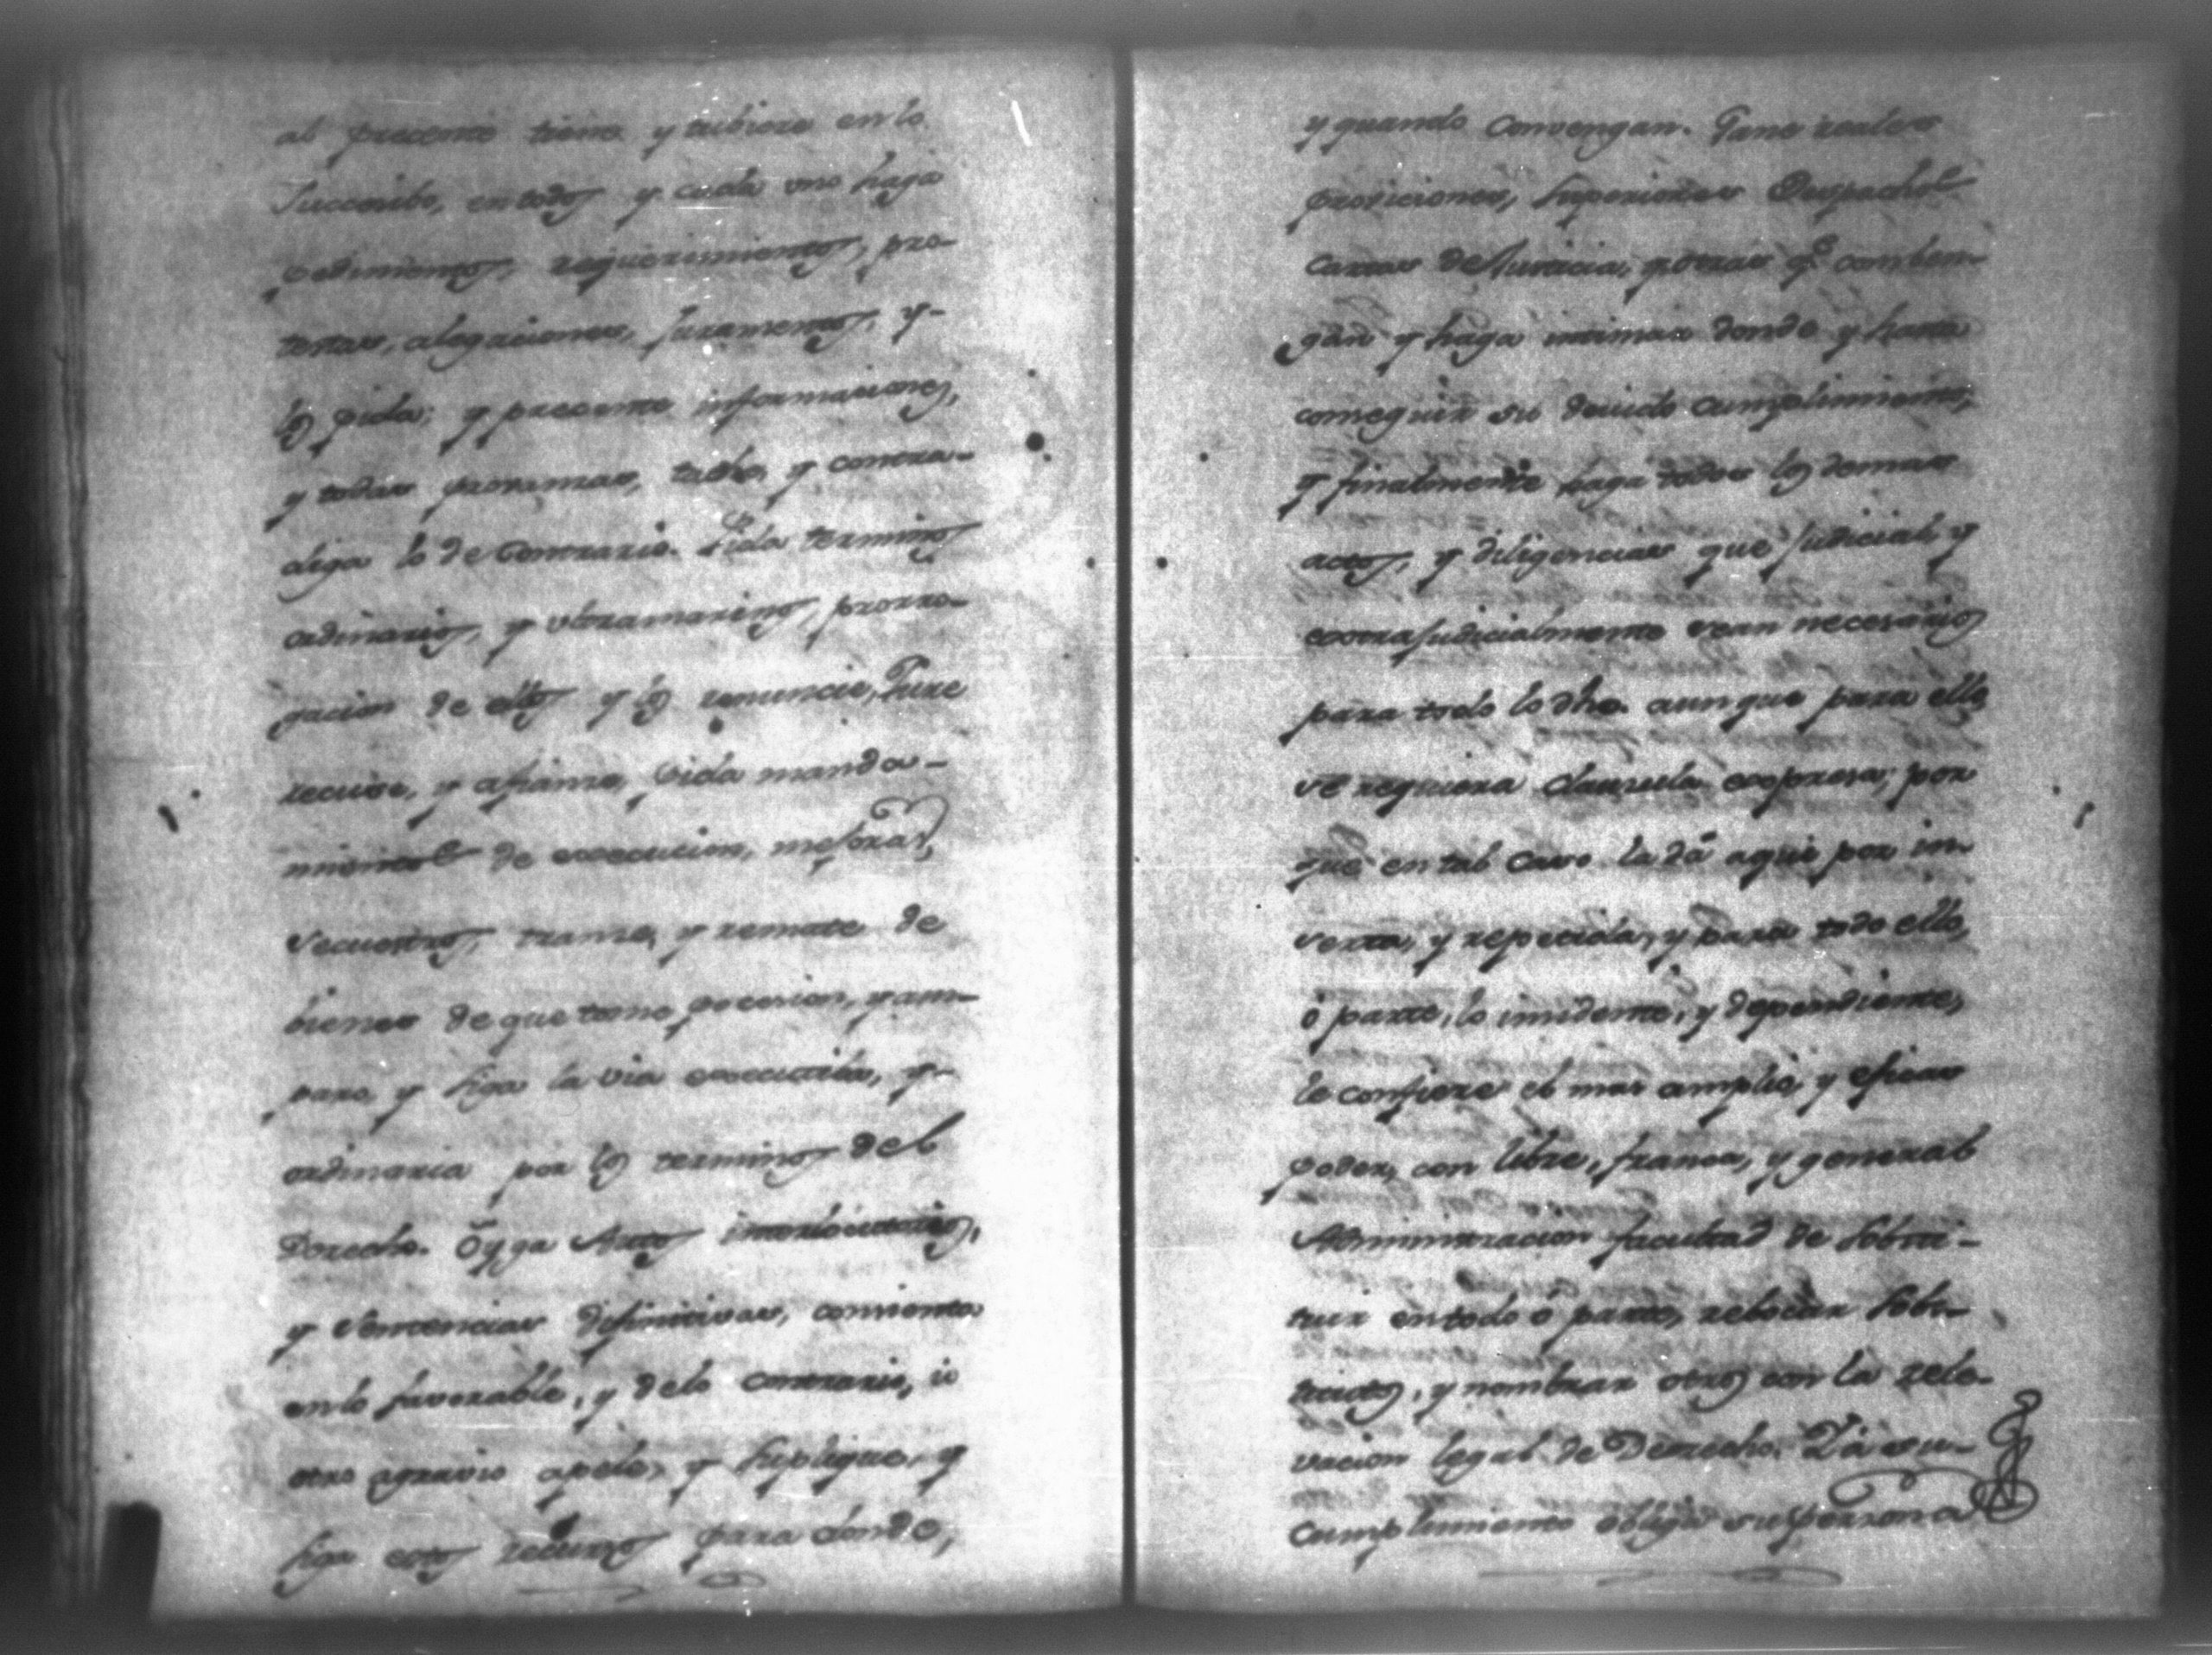 al precente tiene y tubiere en lo
succesibo, en todos y cada uno haga
pedimientos, requerimientos, pro-
textas, alegaciones, juramentos, y-
los pida; y precente informaciones,
y todas provanzas, tache, y contra-
diga lo de contrario. Pida terminos
ordinarios, y ultramarinos, prorro-
gacion de ellos y los renuncie, Jure
recuse, y afiance, pida manda-
mientos de execucion, mejoras,
secuestros, tranze, y remate de
bienes de que tome pocesion, y am-
paro, y siga la via executiba, y-
ordinaria por los terminos del
Derecho. Oyga Autos interlocutorios,
y sentencias difinitivas, consienta
en lo favorable, y de lo contrario, ú
otro agravio apele, y suplique, y
siga estos recursos para donde,
y quando convengan. Gane reales
proviciones, superiores Despachos
cartas de Justicia, y otras q.e comben-
gan y haga intimar donde y hasta
conseguir su devido cumplimiento,
y finalmente haga todos los demas
actos, y diligencias que judicial, y
extrajudicialmente sean necesarios
para todo lo dho. aunque para ello
se requiera clausula expresa; por
que en tal caso la dá aqui por in-
serta, y repetida, y para todo ello,
ó parte, lo insidente, y dependiente,
le confiere el mas amplio, y eficas
poder, con libre, franca, y general
Administracion facultad de sobsti-
tuir en todo ó parte, rebocar sobs-
titutos, y nombrar otros con la rele-
vacion legal de Derecho. Y á su-
cumplimiento obliga su persona